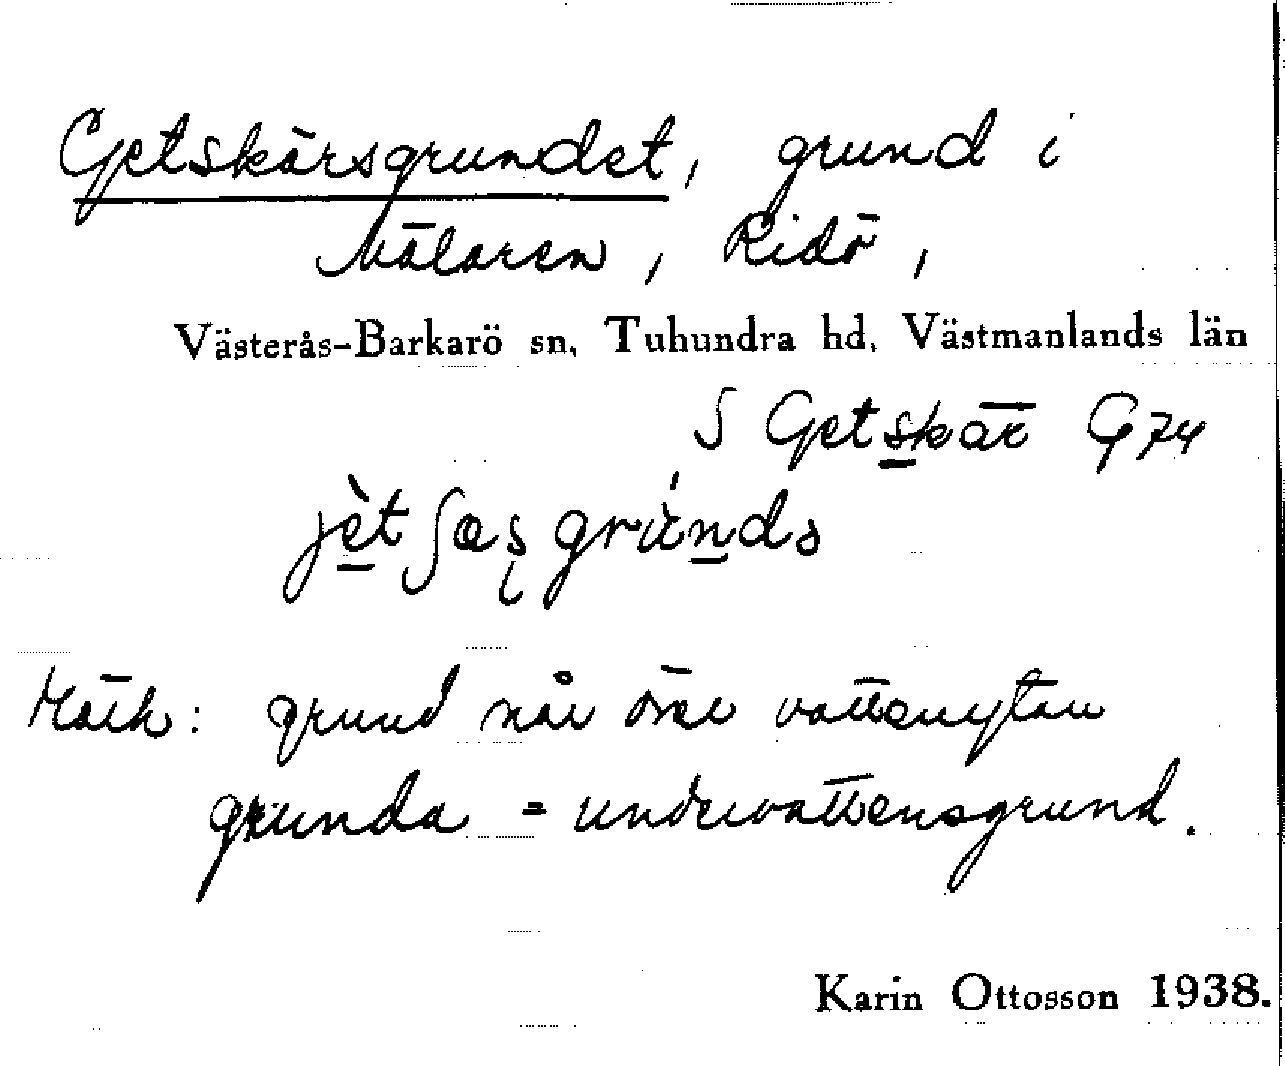 Getskärsgrundet, grund i
Mälaren, Ridö,
Västerås-Barkarö sn, Tuhundra hd, Västmanlands län
S Getskär G74
jètʃæʂgrùndə
: grund når över vattenytan
grunda = undervattensgrund.
Karin Ottosson 1938.